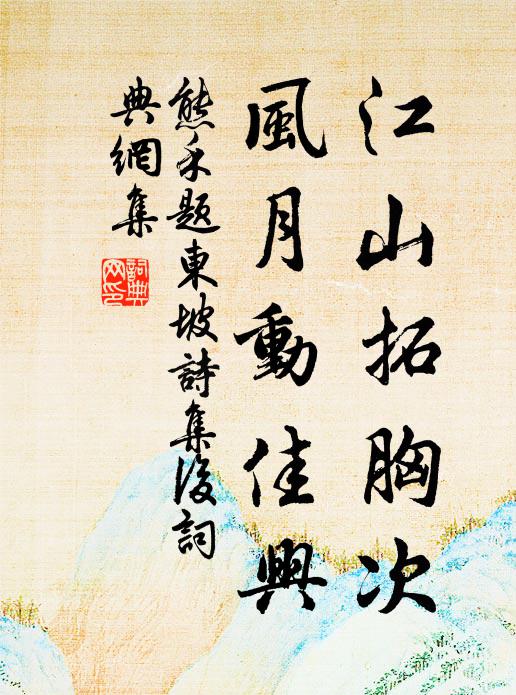 江山拓胸次
風月動佳興
熊禾題東坡詩集後詞
典網集
詞典網印